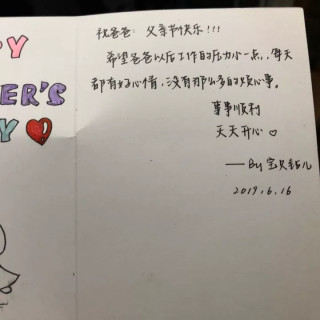 PY
ER'S
Y
祝爸爸：父亲节快乐！！！
希望爸爸以后工作的压力小一点，每天
都有好心情，没有那么多的烦心事。
事事顺利
天天开心♡
——By宝贝女儿
2019.6.16